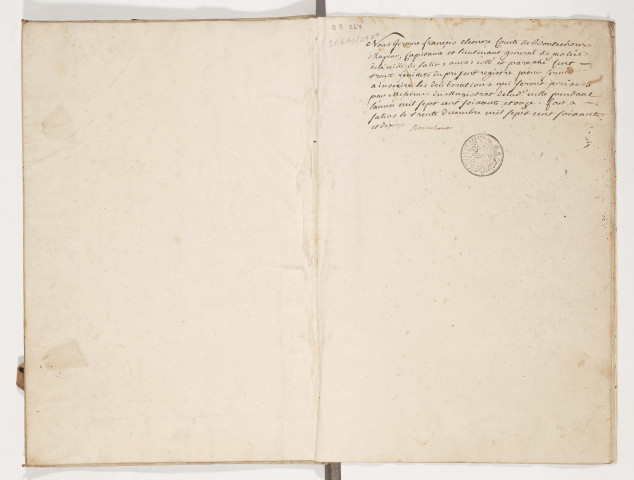 Nous françois Eleonore Comte de
Mayeur, Capitaine et lieutenant general de police
de la ville de Salins avons cotté et paraphé
trente feuillets du present registre pour servir
a inscrire les deliberations qui seront prises
par Messieurs du Magistrat de lad.e ville pendant
l'année mil sept cent soixante et onze. fait a
salins le trente decembre mil sept cent soixante
et dix.